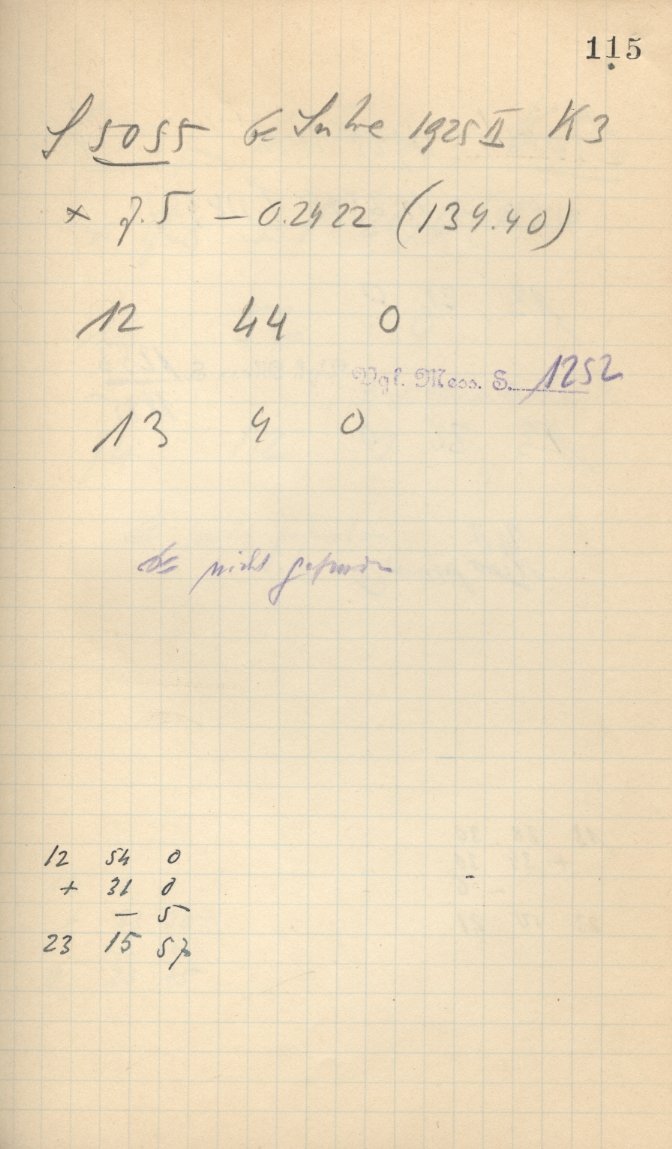 115
S 5055 1925 II K3
× 7.5 – 0.2422 (134.40)
12 44 0
Vgl. Mess. S. 1252
13 4 0
nicht gefunden
12 54 0
+ 31 0
– 5
23 15 57